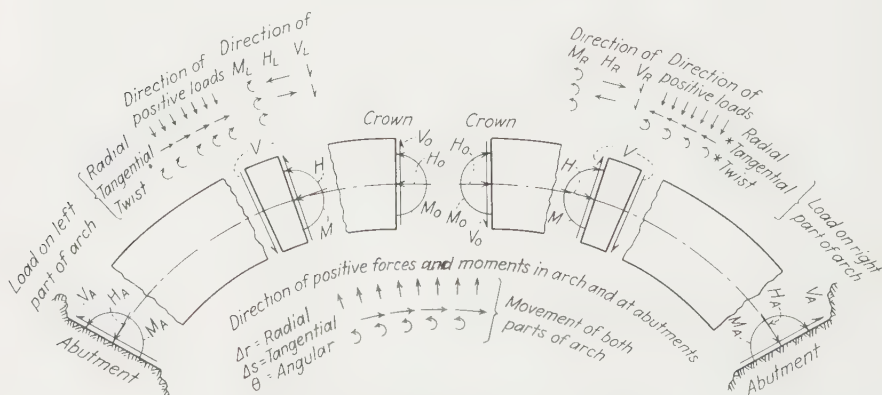 Direction of
positive loads
Direction of
M_L H_L V_L
Radial
Tangential
Twist
Load on left
part of arch
V
H
M
Crown
V_O
H_O
M_O
Crown
H_O
M_O
V_O
V
H
M
Direction of
M_R H_R V_R
Direction of
positive loads
*Radial
Tangential
*Twist
Load on right
part of arch
V_A
H_A
M_A
Abutment
Direction of positive forces and moments in arch and at abutments
Δr = Radial
Δs = Tangential
θ = Angular
Movement of both
parts of arch
M_A
H_A
V_A
Abutment